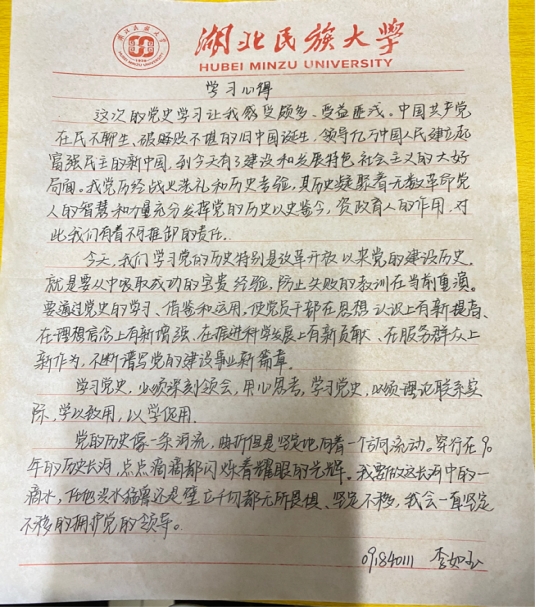 湖北民族大学
HUBEI MINZU UNIVERSITY
学习心得
这次的党史学习让我感受颇多、受益匪浅。中国共产党
在民不聊生、破败不堪的旧中国诞生，领导亿万中国人民建立起
富强民主的新中国，到今天有了建设和发展特色社会主义的大好
局面。我党历经战火洗礼和历史考验，其历史凝聚着无数革命党
人的智慧和力量充分发挥党的历史以史鉴今，资政育人的作用，对
此我们有着不可推卸的责任.
今天，我们学习党的历史特别是改革开放以来党的建设历史，
就是要从中吸取成功的宝贵经验，防止失败的教训在当前重演。
要通过党史的学习、借鉴和运用，使党员干部在思想认识上有新提高、
在理想信念上有新增强、在推进科学发展上有新贡献、在服务群众上
新作为，不断谱写党的建设事业新篇章。
学习党史，必须深刻领会，用心思考，学习党史，必须理论联系实
际，学以致用，以学促用.
党的历史像一条河流，曲折但是坚定地向着一个方向流动。穿行在90
年的历史长河，点点滴滴都闪烁着耀眼的光辉。我要做这长河中的一
滴水，任他洪水猛兽还是壁立千仞都无所畏惧、坚定不移，我会一直坚定
不移的拥护党的领导。
091840111 李如